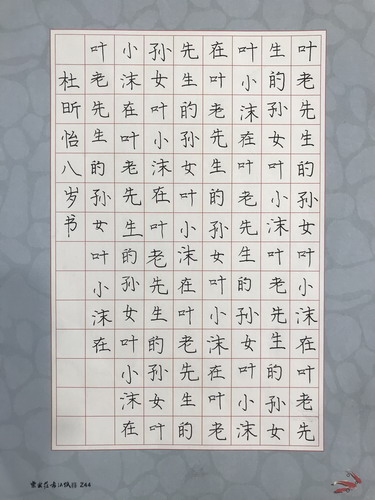 叶老先生的孙女叶小沫在叶老先
生的孙女叶小沫叶老先生的孙女
叶小沫在叶老先生的孙女叶小沫
在叶老先生的孙女叶小沫在叶老
先生的孙女叶小沫在叶老先生的
孙女叶小沫在叶老先生的孙女叶
小沫在叶老先生的孙女叶小沫在
叶老先生的孙女叶小沫在
杜昕怡八岁书